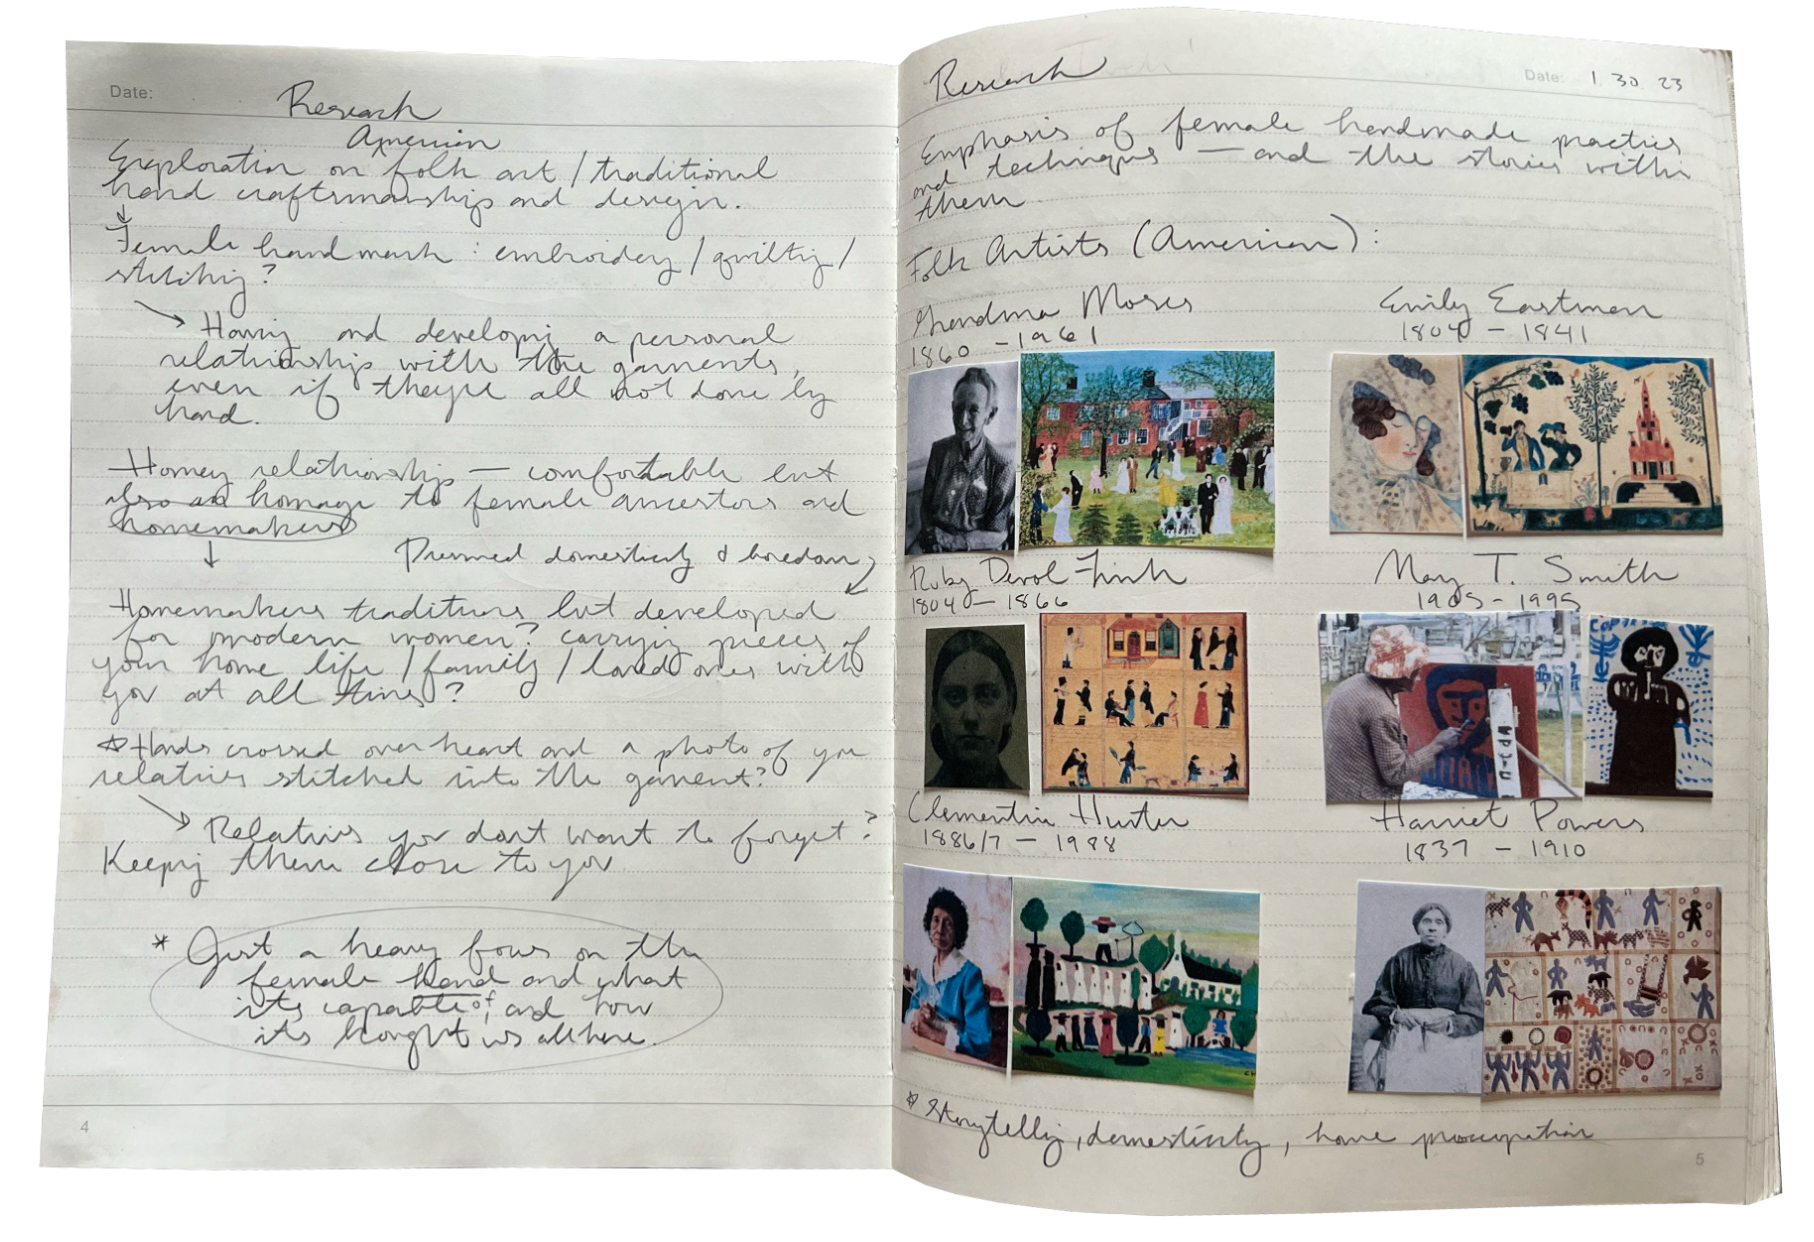 Date:
Research
American
Exploration on folk art / traditional
hand craftsmanship and design.
Female handmark : embroidery / quilting /
stitching?
Having and developing a personal
relationship with the garments,
even if they're all not done by
hand.
Homey relationship — comfortable but
also an homage to female ancestors and
homemakers
Presumed domesticity & boredom
Homemakers traditions but developed
for modern women? carrying pieces of
your home life / family / loved ones with
you at all times?
Hands crossed over heart and a photo of your
relatives stitched into the garment?
Relatives you don't want to forget?
Keeping them close to you
* Just a heavy focus on the
female hand and what
its capable of, and how
its brought us all here.
4
Research
Date: 1. 30. 23
Emphasis of female handmade practices
and techniques — and the stories within
them
Folk Artists (American):
Grandma Moses
1860 - 1961
Emily Eastman
1804 - 1841
Ruby Devol Finch
1804 - 1866
Mary T. Smith
1905 - 1995
Clementine Hunter
1886/7 - 1988
Harriet Powers
1837 - 1910
Storytelling, domesticity, home
5